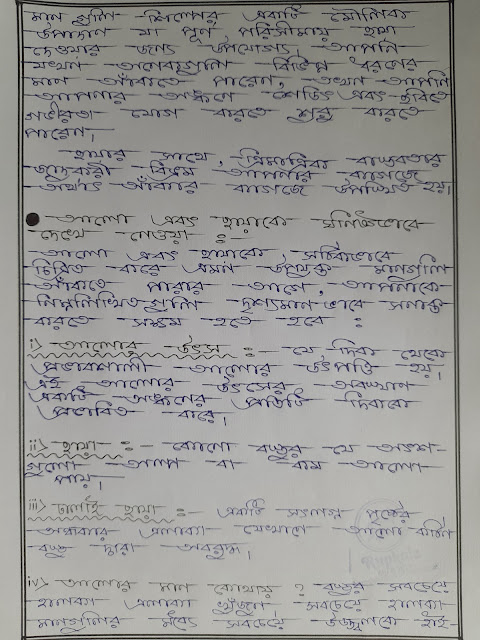 মান গুলি শিল্পের একটি মৌলিক
উপাদান যা পূর্ণ পরিসীমায় ছায়া
দেওয়ার জন্য উপযোগ্য। আপনি
যখন অনেকগুলি বিভিন্ন ধরনের
মান আঁকাতে পারেন, তখন আপনি
আপনার অঙ্কনে শেডিং এবং ছবিতে
গভীরতা যোগ করতে শুরু করতে
পারেন।
ছায়ার সাথে, ত্রিমাত্রিক বাস্তবতার
জাদুকরী বিভ্রম আপনার কাগজে
অর্থাৎ আঁকার কাগজে উপস্থিত হয়।
● আলো এবং ছায়াকে ঘনিষ্ঠভাবে
দেখে নেওয়া :-
আলো এবং ছায়াকে সঠিকভাবে
চিত্রিত করে এমন উপযুক্ত মানগুলি
আঁকাতে পারার আগে, আপনাকে
নিম্নলিখিতগুলি দৃশ্যমান ভাবে সনাক্ত
করতে সক্ষম হতে হবে :
i) আলোর উৎস :- যে দিক থেকে
প্রভাবশালী আলোর উৎপত্তি হয়।
এই আলোর উৎসের অবস্থান
একটি অঙ্কনের প্রতিটি দিককে
প্রভাবিত করে।
ii) ছায়া :- কোনো বস্তুর যে অংশ-
গুলো অল্প বা কম আলো
পায়।
iii) ঢালাই ছায়া :- একটি সংলগ্ন পৃষ্ঠের
অন্ধকার এলাকা যেখানে আলো কঠিন
বস্তু দ্বারা অবরুদ্ধ।
iv) আলোর মান কোথায় ? বস্তুর সবচেয়ে
হালকা এলাকা খুঁজুন, সবচেয়ে হালকা
মানগুলির মধ্যে সবচেয়ে উজ্জ্বলকে হাই-